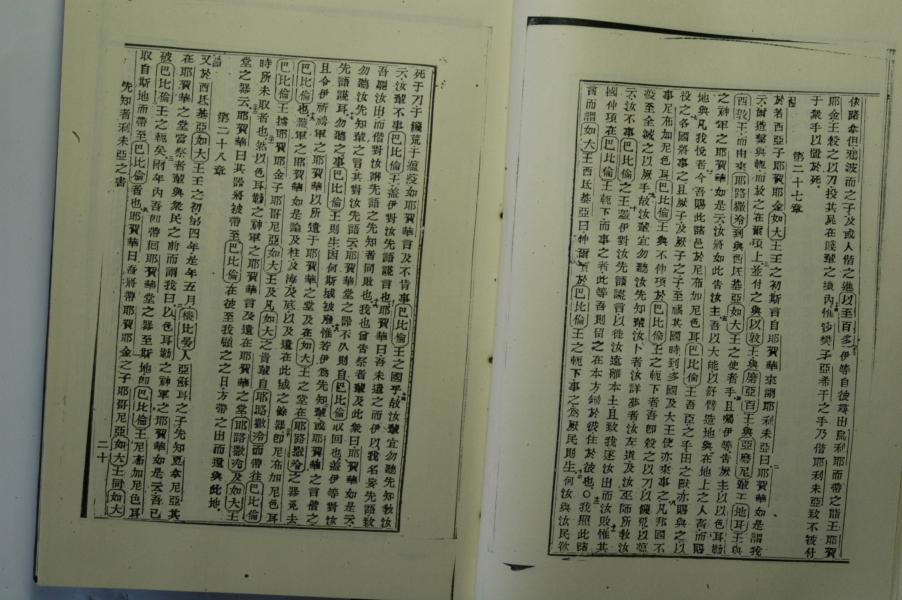 依鏄拿但亞波而之子及或人偕之進以至百多伊等自彼尋出烏利耶而帶之詣王耶賀
耶金王殺之以刀投其屍在賤輩之墳內惟沙樊子亞希干之手乃偕耶利未亞致不被付
于衆手以置於死
第二十七章
於若西亞子耶賀耶金如大王之初斯言自耶賀華來謂耶利未亞曰耶賀華如是謂我
云爾造繫與軛而放之在爾項上並付之與以敦王與磨亞百王與亞磨尼輩王地耳王與
西敦王而由來耶路撒冷到與西氐基亞如大王之使者手且囑伊等告厥主以以色耳勒
之神軍之耶賀華如是云汝將如此告汝主吾以大能以舒臂造地與在地上之人畜而賜
地與凡我悅者今吾賜此諸邑於尼布加尼色耳巴比倫王吾臣之手田之獸亦賜與之以
役之各國將事之且厥子及厥子之子至禍其國時到多國及大王使亦來事之凡邦國不
事尼布加尼色耳巴比倫王與不伸項於巴比倫王之軛下者吾卽殺之以刀以饑荒以瘟
疫至全滅之以厥手故汝輩宜勿聽汝先知輩汝卜者汝詳夢者汝左道及汝巫師所敎汝
云汝不事巴比倫之王蓋伊對汝先語謊言以徙汝遠離本土且致我逐汝出而汝敗惟其
國伸項在巴比倫王軛下而事之者此等吾則留之在本方歸於彼住於彼也○我照此諸
言而謂如大王西氐基亞曰伸爾項於巴比倫王之軛下事之爲厥民則生何汝與汝民欲
死于刀于饑荒于瘟疫如耶賀華言及不肯事巴比倫王之國乎故汝輩宜勿聽先知敎汝
云汝輩不事巴比倫王蓋伊對汝先語謊言也耶賀華曰吾未遣之而伊以我名妄先語致
吾驅汝出而偕對汝謊先語之先知者同敗也我也曾告祭者輩及此衆曰耶賀華如是云
勿聽汝先知輩之言其對汝先語云耶賀華堂之器不久則自巴比倫取回也蓋伊等對汝
先語謊耳勿聽之事巴比倫王則生因何斯城被廢惟若伊爲先知輩或耶賀華之言偕之
且令伊祈諸軍之耶賀華以所遺于耶賀華之堂及在如大王之堂在耶路撒冷之器免去
巴比倫也蓋軍之耶賀華如是論及柱及海及底以及遺在此城之餘器卽尼布加尼色耳
巴比倫王擄耶賀耶金子耶哥尼亞如大王及凡如大之貴輩自耶路撒冷而帶往巴比倫
時所未取者也然以色耳勒之神軍之耶賀華言及遺在耶賀華之堂耶路撒冷及如大王
堂之器云耶賀華曰其器將被帶至巴比倫在彼至我顧之之日方帶之出而還與此地
第二十八章
又於西氐基亞如大王之初第四年是年五月機比晏人亞蘇耳之子先知夏拿尼亞其
在耶賀華之堂當祭者輩與衆民之前而謂我曰以色耳勒之神軍之耶賀華如是云吾已
破巴比倫王之軛矣兩年內吾卽帶回耶賀華堂之器至斯地卽巴比倫王尼布加尼色耳
取自斯地而帶至巴比倫者也耶賀華曰吾將帶耶賀耶金之子耶哥尼亞如大王同如大
先知者耶利未亞之書
二十